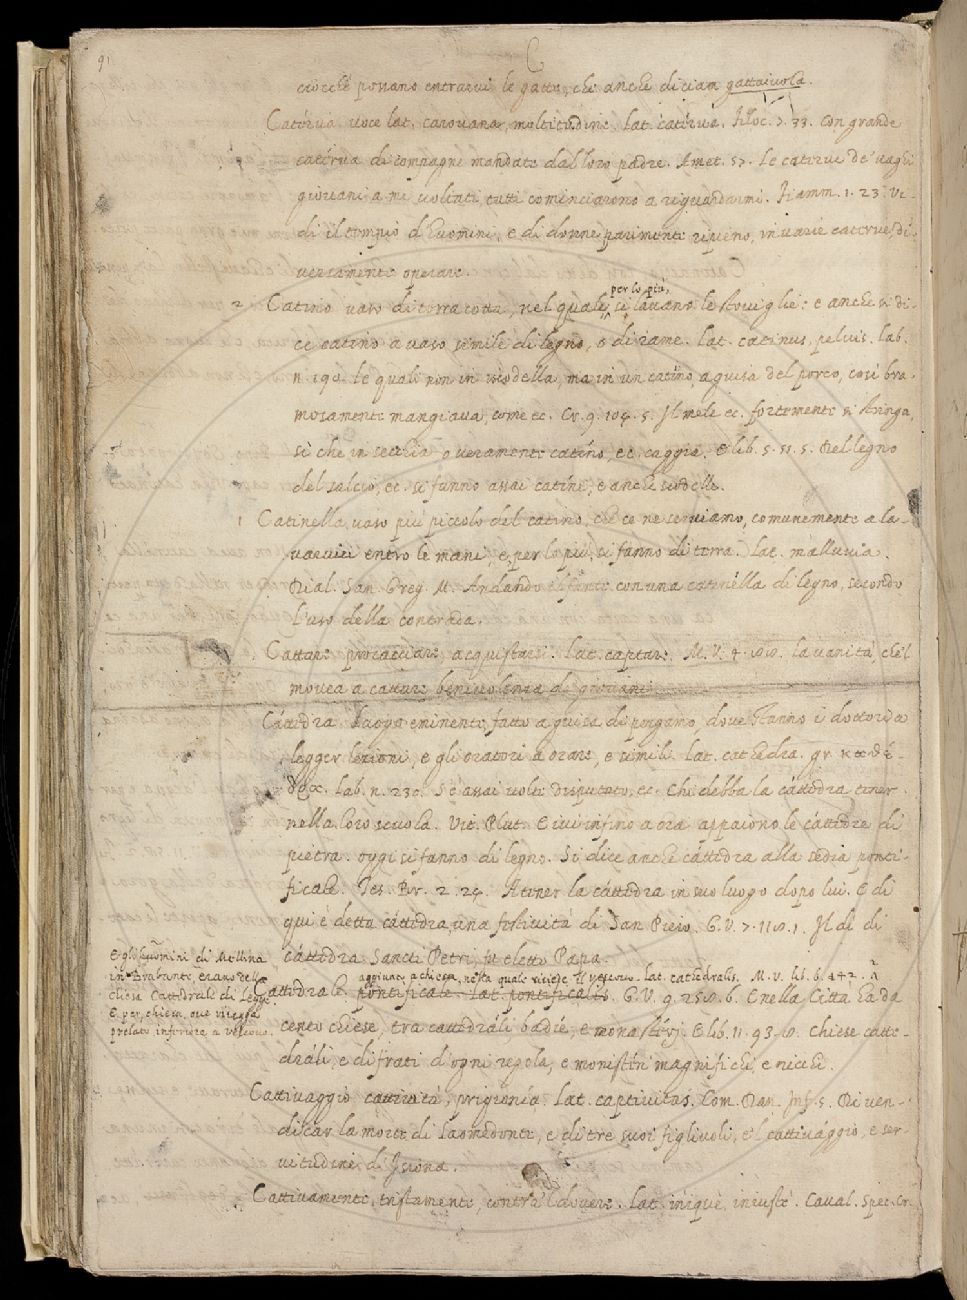 91
C
ciocchè possano entrarvi le gatte, che anche diciam gattaiuola.
Catérva voce lat. carovana, moltitudine. Lat. catérva. Filoc. 7. 33. Con grande
catérva di compagni mandati dal loro padre. Amet. 57. Le catérve de' vaghi
giovani a me voltati, tutti cominciarono a riguardarmi. Fiamm. 1. 23. Vi-
di il tempio d'huomini, e di donne parimente ripieno, in varie catérve, di-
versamente operare.
2 Catino vaso di terra cotta, nel quale, per lo più, si lavano le stoviglie: e anche si di-
ce catino a vaso simile di legno, o di rame. Lat. catinus, pelvis. Lab.
n. 190. le quali non in iscodella, ma in un catino, a guisa del porco, così bra-
mosamente mangiava, come ec. Cr. 9. 104. 5. Il mele ec. fortemente si stringa,
sì che in secchia o veramente catíno, ec. caggia. E lib. 5. 51. 5. Del legno
del salcio, ec. si fanno assai catíni, e anche scodelle.
1 Catinella, vaso più piccolo del catino, che ce ne serviamo, comunemente a la-
varvici entro le mani, e, per lo più, si fanno di terra. Lat. malluvia.
Dial. San. Greg. M. Andando con una catinella di legno, secondo
l'uso della contrada.
Cattare procacciare acquistarsi. Lat. captare. M. V. 4. la vanità, che'l
movea a cattare benivolenza di giovani
Cáttedra luogo eminente, fatto a guisa di pergamo, dove stanno i dottori a
legger lezioni, e gli oratori a orare, e simili. Lat. cathedra. gr. καθέ-
δρα. Lab. n. 230. S'è assai volte disputato, ec. Chi debba la cáttedra tener
nella loro scuola. Vit. Plut. E ivi infino a ora appaiono le cáttedre di
pietra. oggi si fanno di legno. Si dice anche cáttedra alla sedia ponti-
ficale. Tes. Br. 2. 24. A tener la cáttedra in suo luogo dopo lui. E di
qui è detta cáttedra, una festività di San Piero. G. V. 7. 110. 1. Il dì di
cáttedra Sancti Petri, fu eletto Papa.
E gli huomini di Mellina
in Brabante, erano della
chiesa Cattedrale di Legge.
E per chiesa, ove risegga
prelato inferiore a vescovo.
aggiunto a chiesa, nella quale risiede il vescovo. Lat. cathedralis. M. V. lib. 6. 442.
Cattedrale pontificale. Lat. pontificalis. G. V. 9. 250. 6. E nella Città ha da
cento chiese, tra cattedráli badíe, e monasterj. E lib. 11. 93. Chiese catte-
dráli, e di frati d'ogni regola, e monistéri magnifichi, e ricchi.
Cattivaggio cattività, prigionía. Lat. captivitas. Com. Dan. Inf. 5. Di ven-
dicar la morte di Laomedonte, e di tre suoi figliuoli, e'l cattivággio, e ser-
vitudine, di Isiona.
Cattivamente. tristamente, contra'l dovere. Lat. iniquè, iniustè. Caval. Spec. Cr.